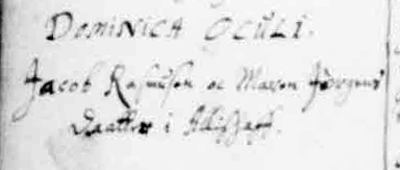 DOMINICA OCULI.
Jacob Rasmusen oc Maren Jörgens
Daatter i